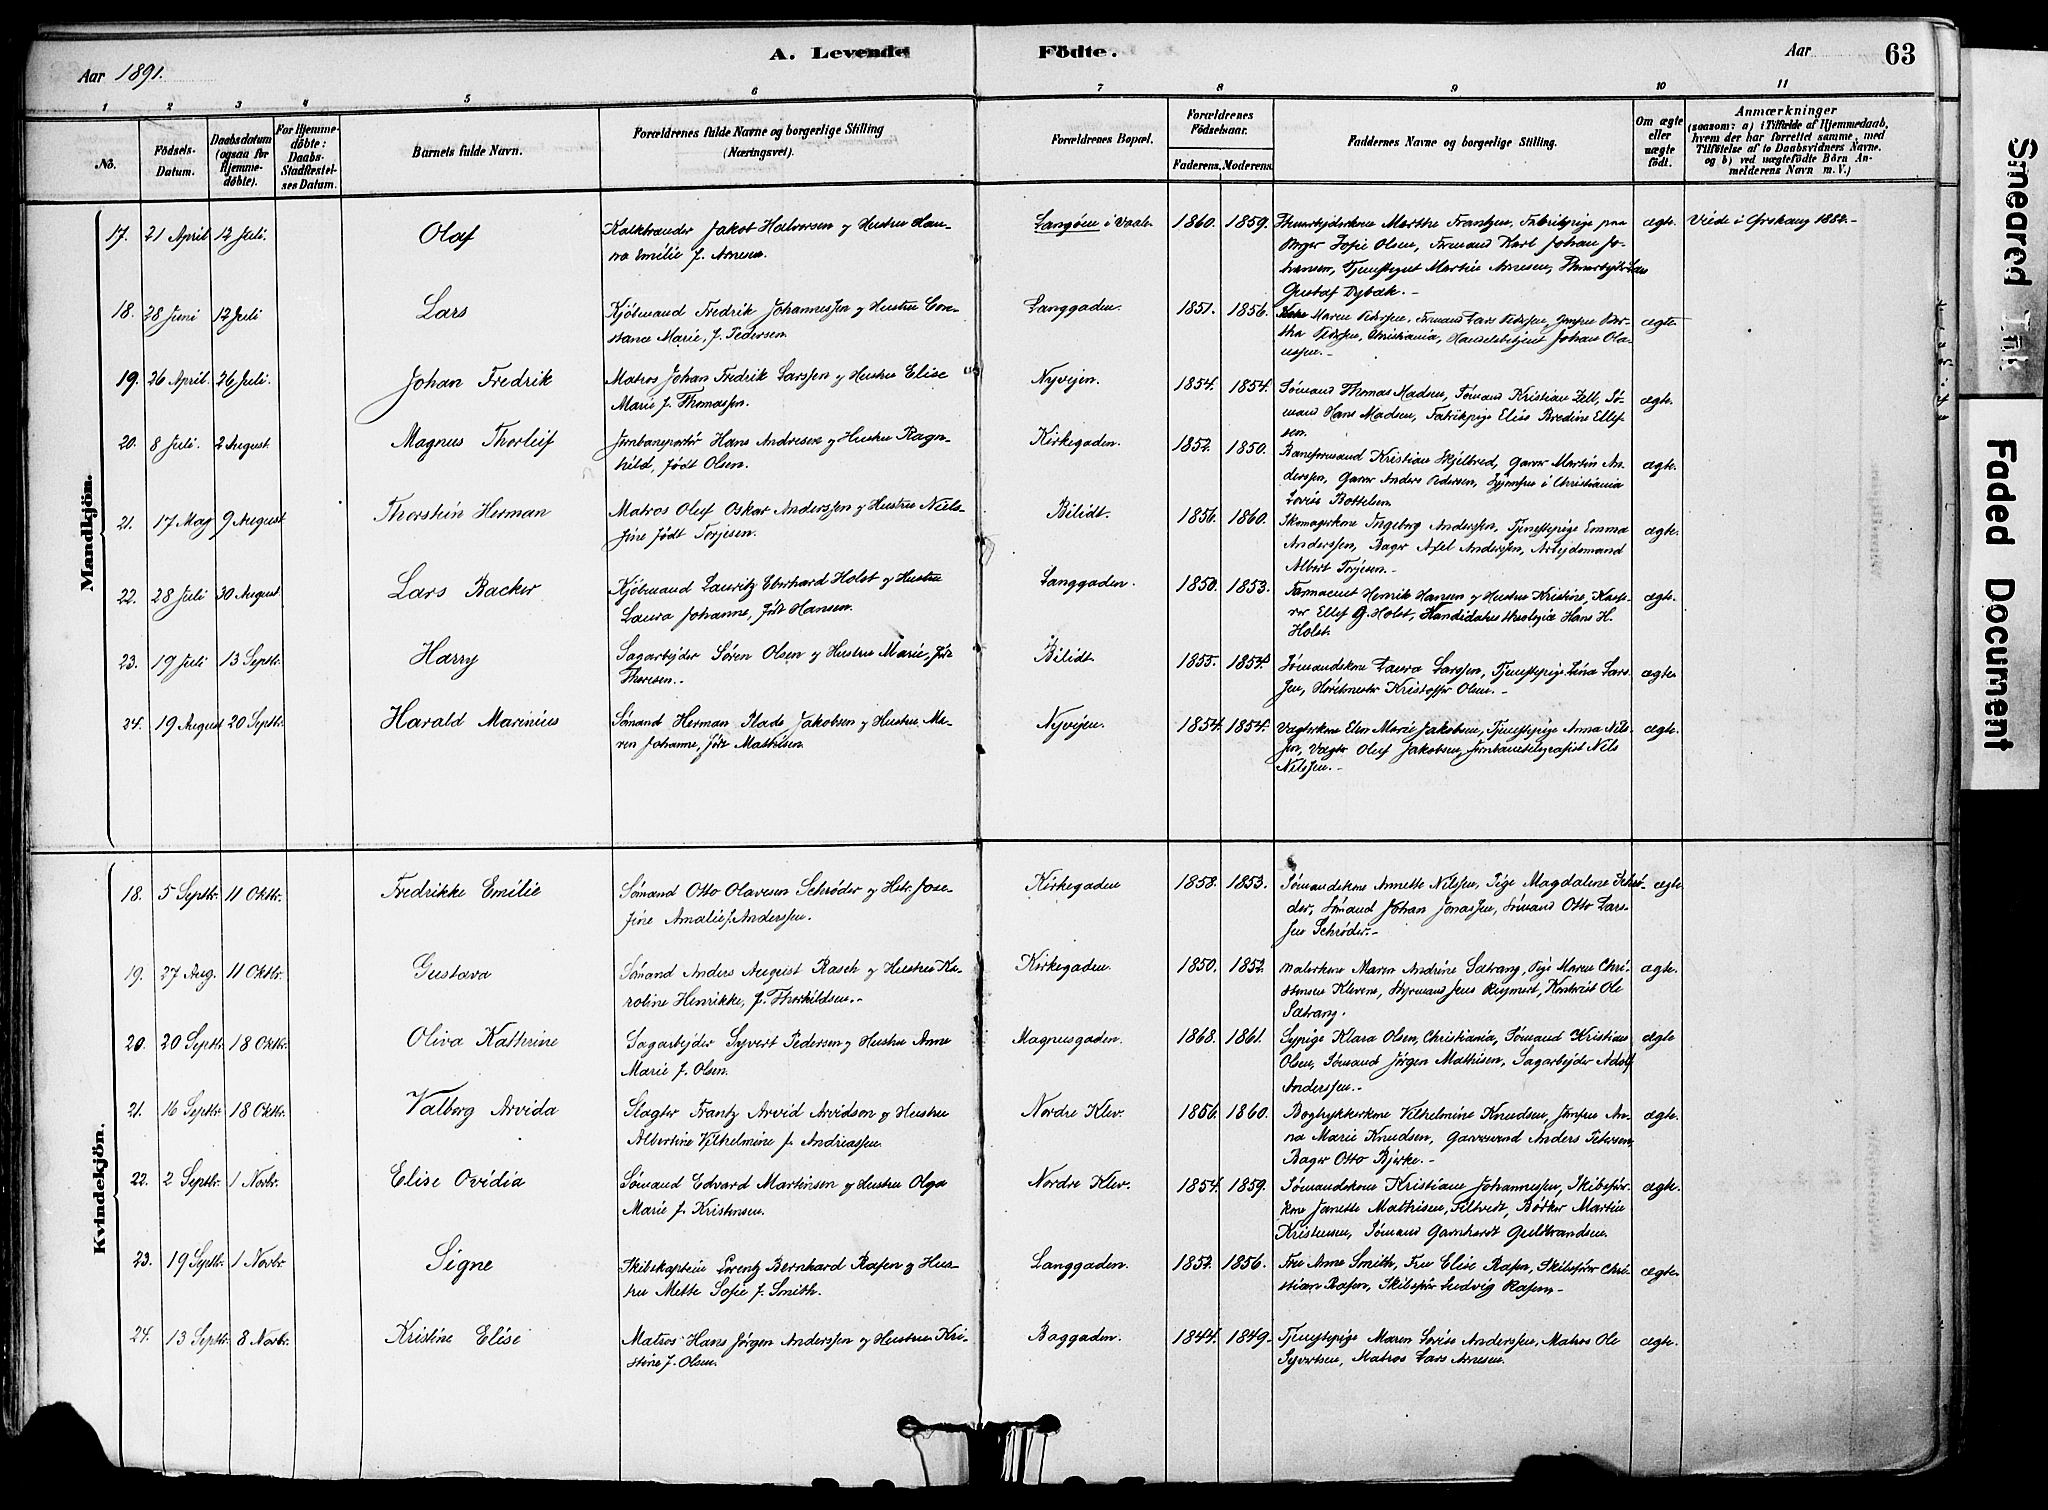 A. Levende Fødte.
Aar 1891.
Aar
63
1 2 3 4 5 6 7 8 9 10 11
No.
Fødsels-Datum.
Daabsdatum (ogsaa for Hjemmedøbte).
For Hjemmedøbte: Daabs-Stadfæstelses Datum.
Barnets fulde Navn.
Forældrenes fulde Navne og borgerlige Stilling (Næringsvei).
Forældrenes Bopæl.
Forældrenes Fødselsaar.
Faderens. Moderens.
Faddernes Navne og borgerlige Stilling.
Om ægte eller uægte født.
Anmærkninger
(saasom: a) i Tilfælde af Hjemmedaab, hvem der har forrettet samme, med Tilføielse af to Daabsvidners Navne. og b) ved uægtefødte Børn Anmelderens Navn m. V.)
Mandkjön.
17. 21 April 12 Juli. Olaf
Kalkbrænder Jakob Halvorsen og Hustru Hanna Emilie f. Arnesen.
Langøen i Vaale 1860. 1859.
Marthe Frantzen, Fabrikpige paa Sofie Olsen, Formand Karl Johan Johansen, Martin Arnesen, Gustaf Dybæk.-
ægte. Viede i Ørskoug 1882.-
18. 28 Juni 12 Juli Lars
Kjøbmand Fredrik Johannessen og Hustru Constance Marie, f. Pedersen.
Langgaden. 1851. 1856.
Maren Pedersen, Formand Lars Pedersen, Jomfru Bertha Pedersen, Christiania, Handelsbetjent Johan Olaussen.-
ægte
19. 26 April. 26 Juli. Johan Fredrik
Matros Johan Fredrik Larssen og Hustru Elise Marie f. Thomassen.
Nyvejen. 1854. 1854.
Sømand Thomas Madsen, Sømand Kristian Zell, Sømand Hans Madsen, Fabrikpige Elise Bredine Ellefsen.
ægte.
20. 8 Juli. 2 August. Magnus Thorleif
Jernbaneportør Hans Andresen og Hustru Ragnhild, født Olsen.
Kirkegaden. 1852. 1850.
Baneformand Kristian Skjelbred, Garver Martin Anderssen, Garver Anders Pedersen, i Christiania Lovise Bottelsen
ægte.
21. 17 Maj 9 August Thorstein Herman
Matros Oluf Oskar Anderssen og Hustru Nielsine født Torjesen.
Bilidt. 1856. 1860.
Skomagerkone Ingeborg Anderssen, Tjenestepige Emma Anderssen, Bager Axel Anderssen, Arbejdsmand Albert Torjesen.-
ægte.
22. 28 Juli 30 August. Lars Backer
Kjøbmand Lauritz Eberhard Holst og Hustru Laura Johanne, født Hansen.
Langgaden. 1850. 1853.
Farmaceut Henrik Hansen og Hustru Kristine, Kasserer Ellef G. Holst, Kandidatus theologiæ Hans H. Holst.
ægte.
23. 19 Juli 13 Septbr. Harry
Sagarbejder Søren Olsen og Hustru Marie, født Thoresen.-
Bilidt. 1855. 1854
Sømandskone Laura Larssen, Tjenestepige Lina Larssen, Kristoffer Olsen.-
ægte
24. 19 August 20 Septbr. Harald Marinius
Sømand Herman Plade Jakobsen og Hustru Maren Johanne, født Mathisen.
Nyvejen. 1854. 1854.
Vægterkone Elen Marie Jakobsen, Tjenestepige Anna Nilssen, Vægter Oluf Jakobsen, Jernbanetelegrafist Nils Nilssen.-
ægte.
Kvindekjön.
18. 5 Septbr. 11 Oktbr. Fredrikke Emilie
Sømand Otto Olavesen Schrøder og Hstr. Josefine Amalie f. Anderssen.
Kirkegaden 1858. 1853.
Sømandskone Annette Nilssen, Pige Magdalene Schrøder, Sømand Johan Jonassen, Sømand Otto Larssen Schrøder.-
ægte
19. 27 Aug. 11 Oktbr. Gustava
Sømand Anders August Rasch og Hustru Karoline Henrikke, f. Thorkildsen.-
Kirkegaden. 1850. 1852.
Malerkone Maren Andrine Sætrang, Pige Maren Christensen Klevene, Styrmand Jens Rejnert, Kontorist Ole Sætrang.
ægte.
20. 20 Septbr. 18 Oktbr. Oliva Kathrine
Sagarbejder Syvert Pedersen og Hustru Anne Marie f. Olsen.
Magnusgaden. 1868. 1861.
Sypige Klara Olsen, Christiania, Sømand Kristian Olsen, Sømand Jørgen Mathisen, Sagarbejder Adolf Anderssen.-
ægte
21. 16 Septbr. 18 Oktbr. Valborg Arvida
Slagter Frantz Arvid Arvidson og Hustru Albertine Vilhelmine f. Andreassen.
Nordre Klev. 1856. 1860.
Bogtrykkerkone Vilhelmine Knudsen, Jomfru Anna Marie Knudsen, Garversvend Anders Petersen, Bager Otto Bjerke.-
ægte.
22. 2 Septbr. 1 Novbr. Elise Ovidia
Sømand Edvard Martinsen og Hustru Olga Marie f. Kristensen.
Nordre Klev. 1854. 1859.
Sømandskone Kristiane Johannessen, Skibsførkone Janette Mathisen, Filtvedt, Bødker Martin Kristensen, Sømand Garnhardt Guldbrandsen.
ægte.
23. 19 Septbr. 1 Novbr. Signe
Skibskaptein Lorentz Bernhard Rasen og Hustru Mette Sofie f. Smith.
Langgaden. 1852. 1856.
Fru Anne Smith, Fru Elise Rasen, Skibsfør. Christian Rasen, Skibsfør Ludvig Rasen.-
ægte.
24. 13 Septbr. 8 Novbr. Kristine Elise
Matros Hans Jørgen Anderssen og Hustru Kristine f. Olsen.
Baggaden. 1844. 1849.
Tjenestepige Maren Lovise Anderssen, Matros Ole Syvertsen, Matros Lars Arnesen.
ægte.
Smeared Ink
Faded Document